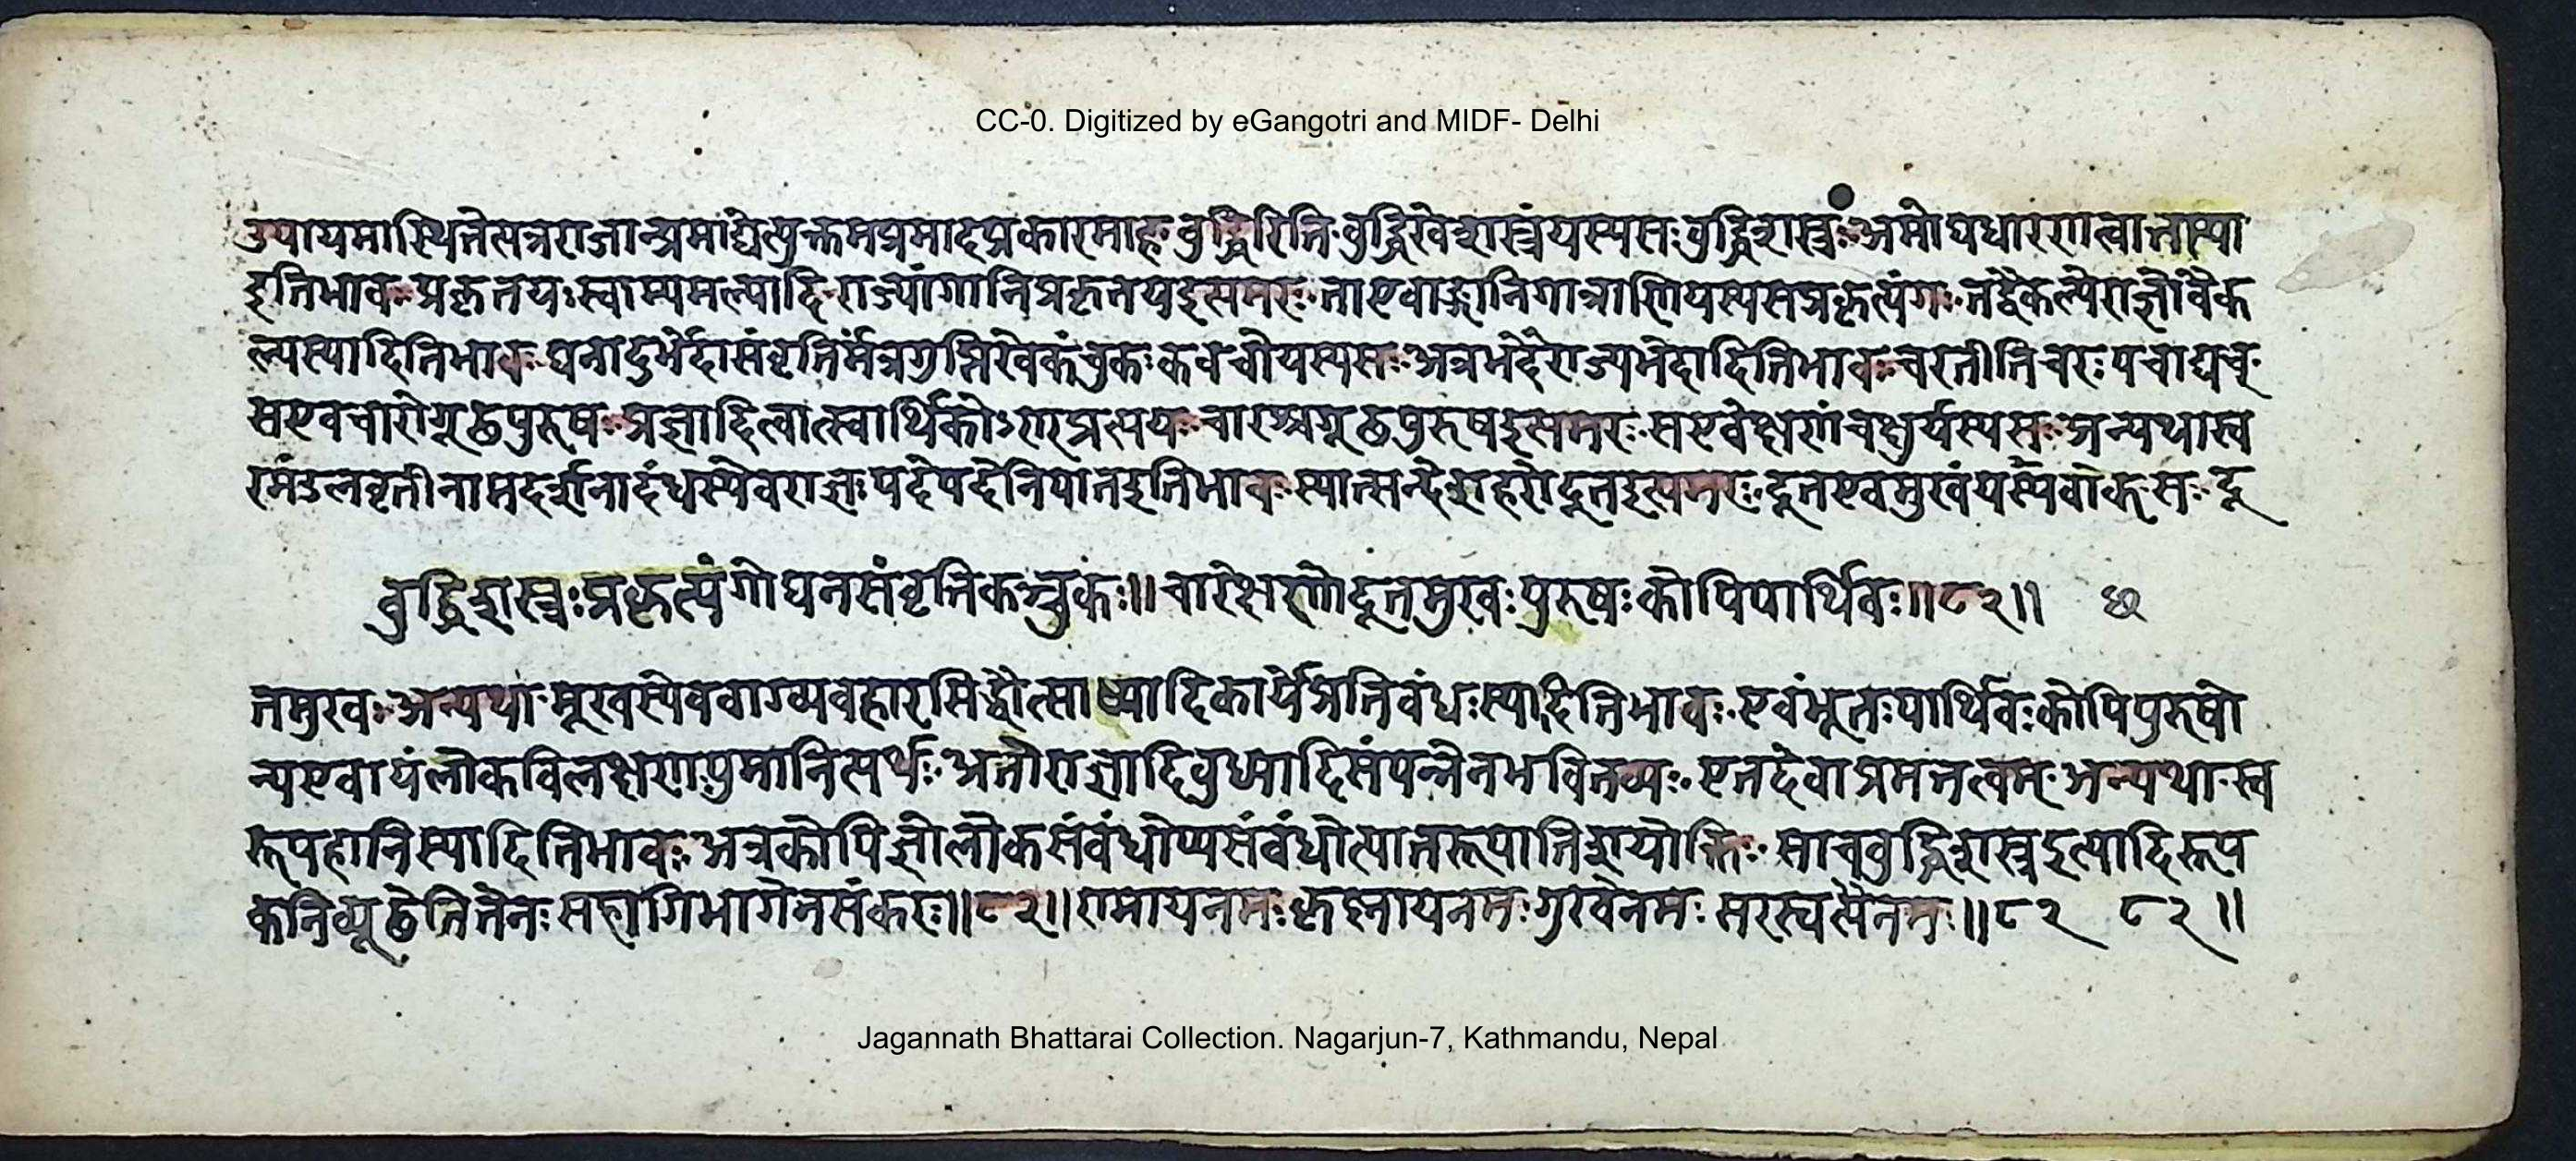 CC-0. Digitized by eGangotri and MIDF- Delhi
उपायमास्थितेत्यत्रराजान्प्रमाद्येत्युक्तमप्रमादप्रकारमाह बुद्धिरिति बुद्धिरेवशस्त्रंयस्यसः बुद्धिशस्त्रः अमोघधारणात्वात्तास्या
इतिभावः प्रकृतयः स्वाम्यमात्यादि राज्यांगानिप्रकृतयइत्यमरः ताएवाङ्गानिगात्राणियस्यसप्रकृत्यंगः तद्वैकल्येराज्ञोवैक
ल्यस्यादितिभावः घनादुर्भेदासंवृतिर्मंत्रगुप्तिरेवकंचुकः कवचोयस्यसः अत्रभेदेराज्यभेदादितिभावः चरतीतिचरः पचाद्यच्
सएवचारोगूढपुरुषः प्रज्ञादित्वात्स्वार्थिकोऽण्प्रत्ययः चारश्चगूढपुरुषइत्यमरः सएवेक्षणंचक्षुर्यस्यसः अन्यथास्व
रमंडलवृत्तीनामदर्शनादंधस्येवराज्ञः पदेपदेनिपातइतिभावः स्यात्सन्देशहरोदूतइत्यमरः दूतएवमुखंयस्यवाक् सः दू
बुद्धिशस्त्रः प्रकृत्यंगोघनसंवृतिकञ्चुकः ॥ चारेक्षणोदूतमुखः पुरुषः कोपिपार्थिवः ॥८२॥
तमुखः अन्यथा मूखस्येववाग्व्यवहारसिद्धौत्साध्यादिकार्येप्रतिबंधः स्यादितिभावः एवंभूतः पार्थिवः कोपिपुरुषो
न्यएवायंलोकविलक्षणः पुमानित्यर्थः अतोराज्ञादिबुध्यादिसंपन्नेनभवितव्यः एतदेवाप्रमत्तत्वम् अन्यथा स्व
रूपहानिस्यादितिभावः अत्रकोपिज्ञोलोकसंबंधोप्यसंबंधोत्पातरूपातिशयोक्तिः साचबुद्धिशस्त्रइत्यादिरूप
कनिव्यूढेतितेनः सहांगिभागेनसंकरः ॥८२॥ रामायनमः कृष्नायनमः गुरवेनमः सरस्वत्यैनमः ॥८२ ८२॥
Jagannath Bhattarai Collection. Nagarjun-7, Kathmandu, Nepal